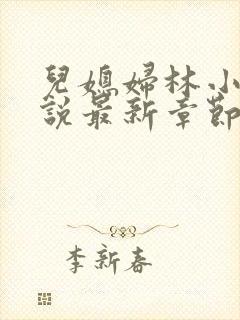 兒媳婦林小
說最新章節
李新春